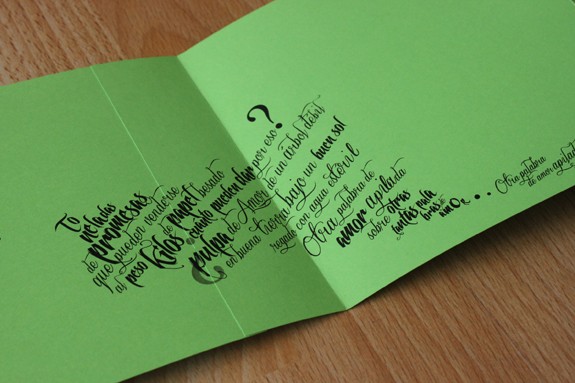 Tú
de promesas
que pueden venderse
al peso Kilos de papel besado
¿cuánto pueden dar por eso?
pulpa de Amor de un árbol débil
en buena tierra, bajo un buen sol
regado con agua estéril
Otra palabra de
amor apilada
sobre otras
tantas
amor...
Otra palabra
de amor apilada